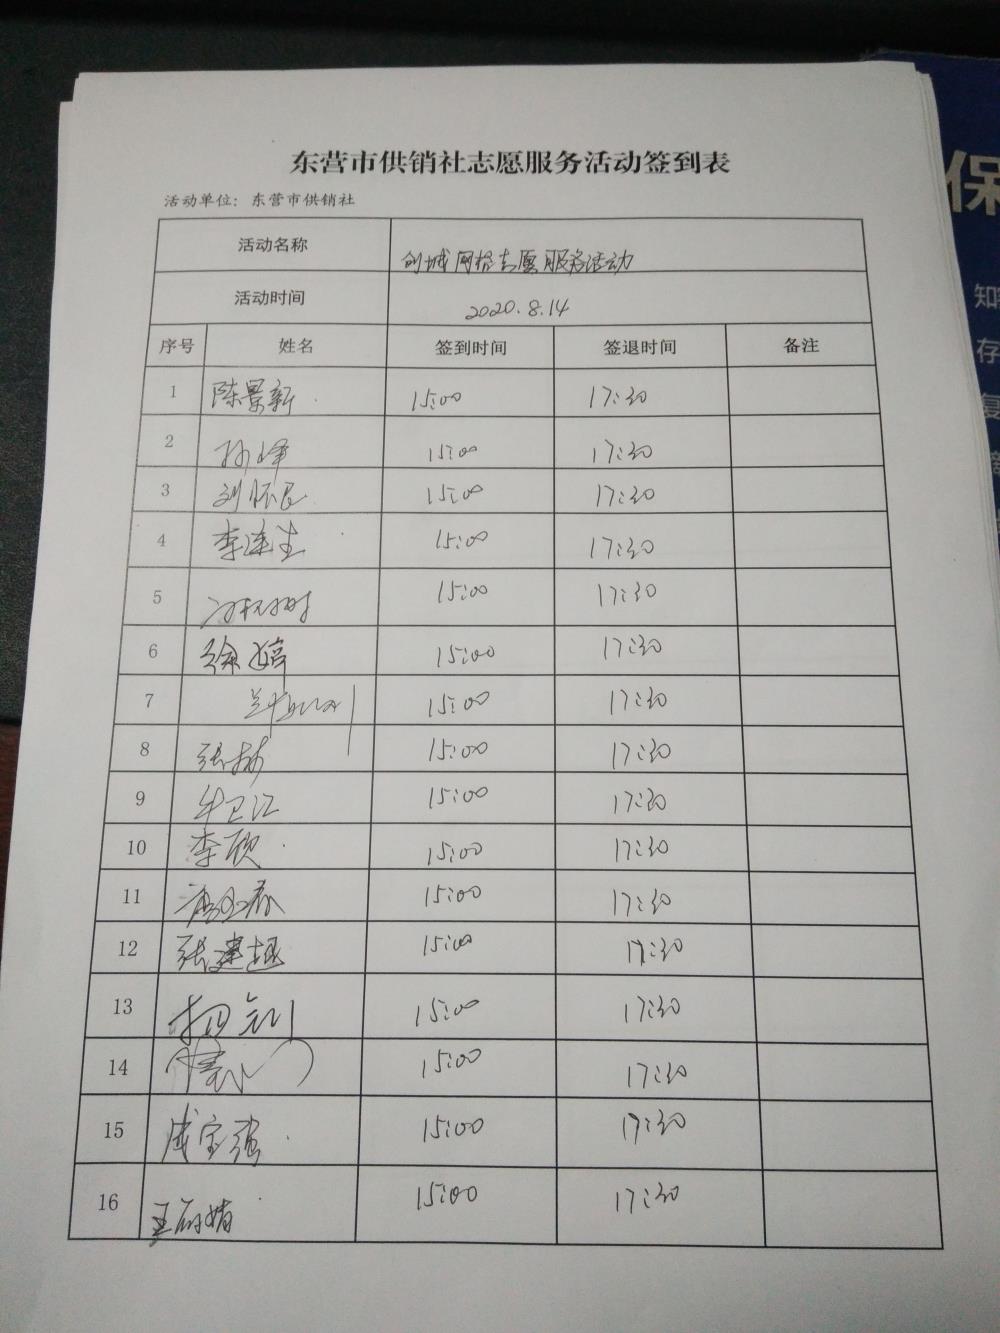 东营市供销社志愿服务活动签到表
活动单位：东营市供销社
活动名称 创城网格志愿服务活动
活动时间 2020.8.14
序号 姓名 签到时间 签退时间 备注
1 陈景新 15:00 17:30
2 孙峰 15:00 17:30
3 刘怀民 15:00 17:30
4 李连生 15:00 17:30
5 15:00 17:30
6 徐婷 15:00 17:30
7 15:00 17:30
8 张林 15:00 17:30
9 牟卫江 15:00 17:30
10 李欣 15:00 17:30
11 15:00 17:30
12 张建越 15:00 17:30
13 15:00 17:30
14 15:00 17:30
15 成宝强 15:00 17:30
16 王 婧 15:00 17:30
保
知
存
复